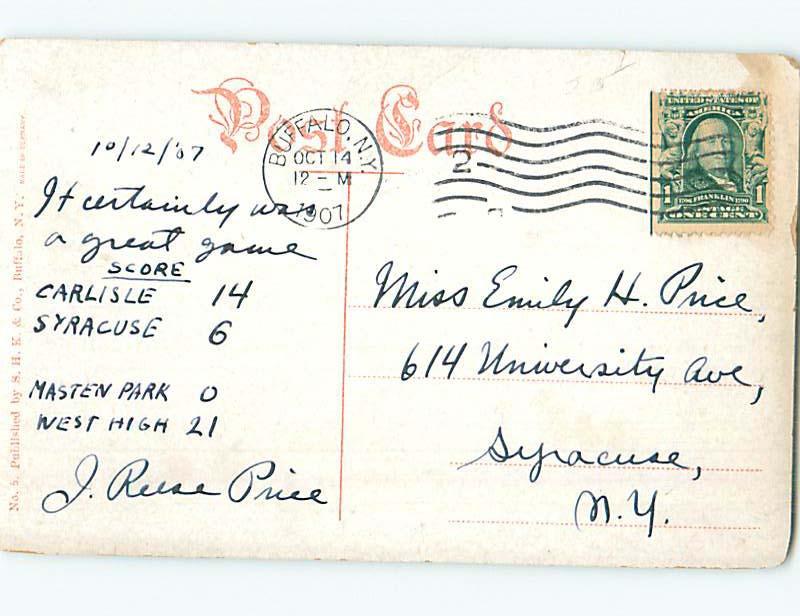 Post Card
BUFFALO, N.Y.
OCT 14
12 - M
1907
2
UNITED STATES OF
AMERICA
1 1
1706 FRANKLIN 1790
POSTAGE
ONE CENT
10/12/'07
It certainly was
a great game
SCORE
CARLISLE 14
SYRACUSE 6
MASTEN PARK 0
WEST HIGH 21
J. Reese Price
Miss Emily H. Price,
614 University Ave,
Syracuse,
N.Y.
No. 5. Published by S. H. K. & Co., Buffalo, N. Y. MADE IN GERMANY